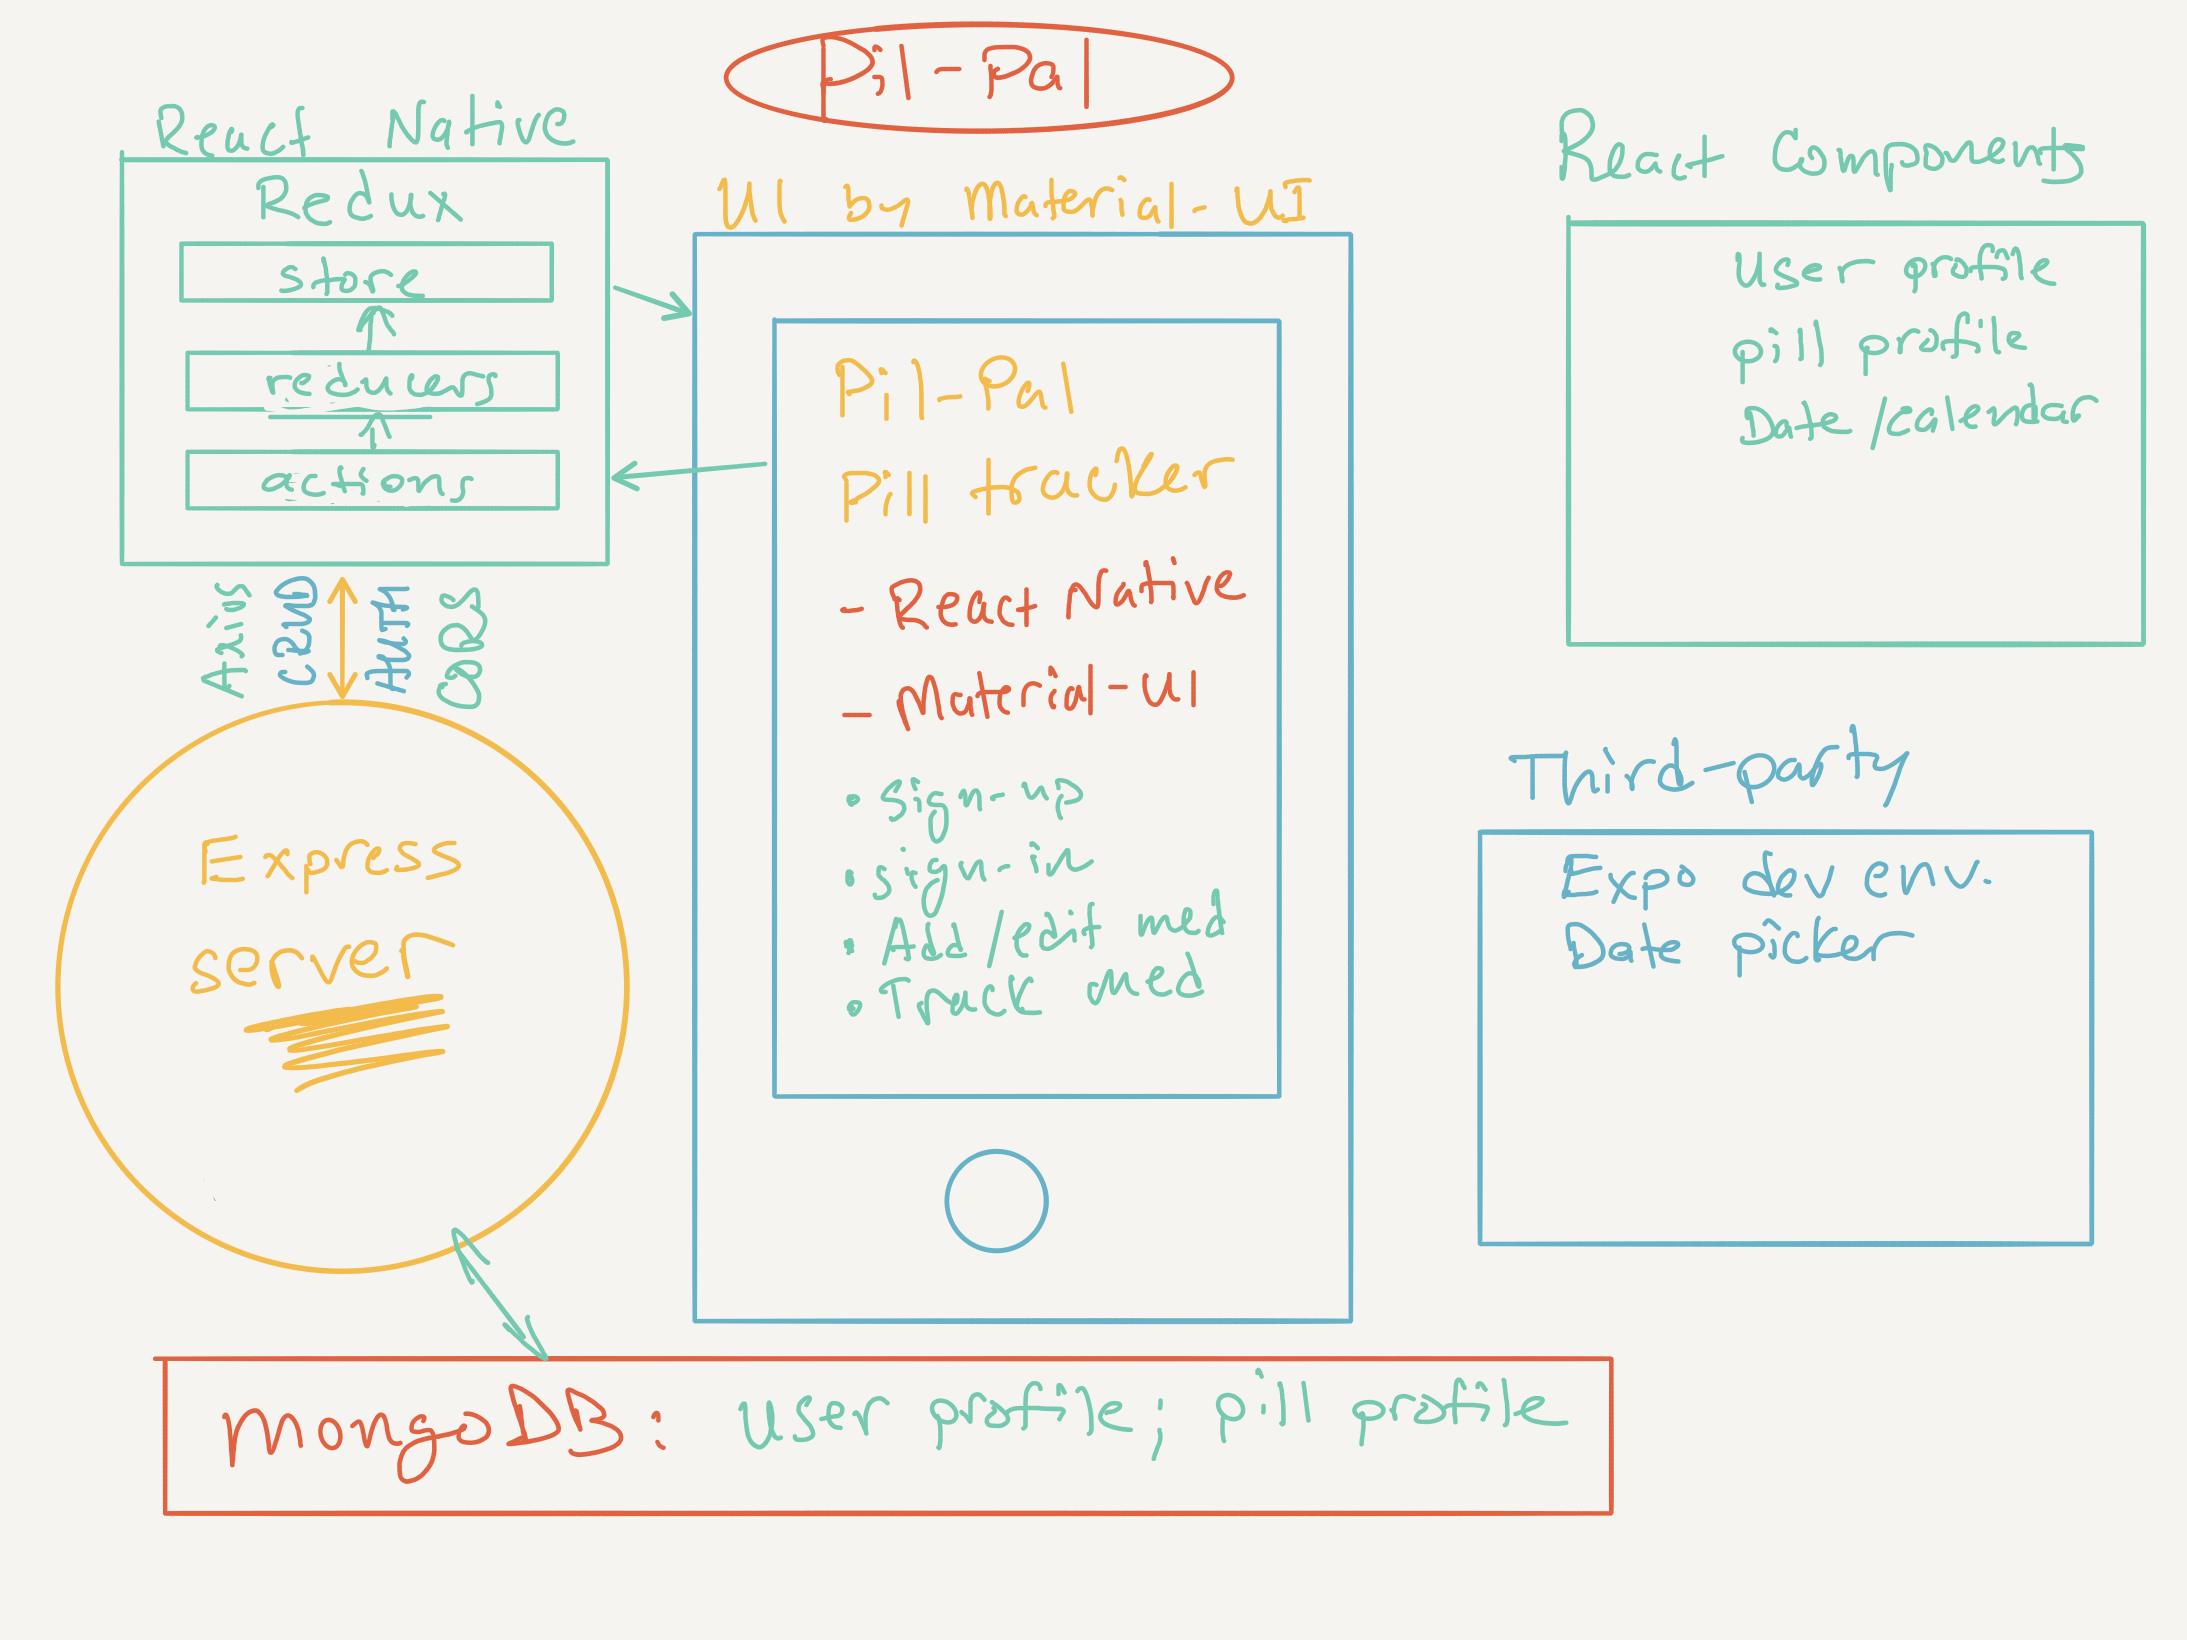 Pil-Pal
React Native
Redux
store
reducers
actions
Axios
CRUD
AUTH
CORS
Express
server
UI by Material-UI
Pil-Pal
Pill tracker
- React Native
- Material-UI
• sign-up
• sign-in
• Add/edit med
• Track med
React Components
User profile
pill profile
Date/calendar
Third-party
Expo dev env.
Date picker
mongoDB: user profile; pill profile